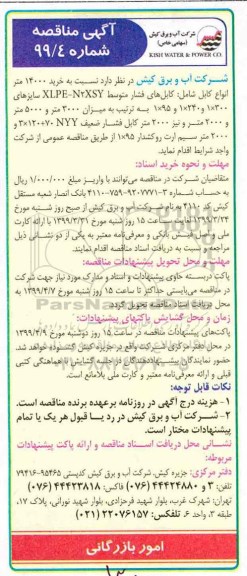 شرکت آب و برق کیش
(سهامی خاص)
KISH WATER & POWER CO.
آگهی مناقصه
شماره ۹۹/۴
شرکت آب و برق کیش در نظر دارد نسبت به خرید ۱۴۰۰۰ متر
انواع کابل شامل: کابل‌های فشار متوسط XLPE-N2XSY سایزهای
۱×۳۰۰ و ۱×۲۴۰ و ۱×۹۵ به ترتیب به میزان ۳۰۰۰ متر و ۵۰۰۰ متر
و ۲۰۰۰ متر و نیز ۲۰۰۰ متر کابل فشار ضعیف NYY ۳×۱۲۰+۷۰ و
۲۰۰۰ متر سیم ارت روکشدار ۱×۹۵ از طریق مناقصه عمومی از شرکت
واجد شرایط اقدام نماید.
مهلت و نحوه خرید اسناد:
متقاضیان شرکت در مناقصه می‌توانند با واریز مبلغ ۱/۰۰۰/۰۰۰ ریال
به حساب شماره ۳-۹۲۰۷۷۷۱-۷۵۹-۴۱۱۰ بانک انصار شعبه مستقل
کیش کد ۴۱۱۰ به نام شرکت آب و برق کیش از صبح روز شنبه مورخ
۱۳۹۹/۳/۲۴ لغایت ساعت ۱۵ روز شنبه مورخ ۱۳۹۹/۳/۳۱ با ارائه کارت
ملی و اصل فیش بانکی و معرفی‌نامه معتبر به یکی از دو نشانی ذیل
مراجعه و نسبت به دریافت اسناد مناقصه اقدام نمایند.
مهلت و محل تحویل پیشنهادات مناقصه:
پاکت دربسته حاوی پیشنهادات و اسناد و مدارک مورد نیاز جهت شرکت
در مناقصه می‌بایستی حداکثر تا ساعت ۱۵ روز شنبه مورخ ۱۳۹۹/۴/۷ به
محل دریافت اسناد مناقصه تحویل گردد.
زمان و محل گشایش پاکتهای پیشنهادات:
پاکت‌های پیشنهادات مناقصه در ساعت ۱۵ روز دوشنبه مورخ ۱۳۹۹/۴/۹
در محل دفتر مرکزی شرکت واقع در جزیره کیش گشوده خواهد شد.
حضور نمایندگان پیشنهاددهندگان در جلسه گشایش با هماهنگی کتبی
قبلی و ارائه معرفی‌نامه معتبر و کارت ملی بلامانع است.
نکات قابل توجه:
۱- هزینه درج آگهی در روزنامه برعهده برنده مناقصه است.
۲- شرکت آب و برق کیش در رد یا قبول هر یک یا تمام
پیشنهادات مختار است.
نشانی محل دریافت اسناد مناقصه و ارائه پاکت پیشنهادات
مربوطه:
دفتر مرکزی: جزیره کیش، شرکت آب و برق کیش کدپستی ۹۵۴۶۵-۷۹۴۱۶
تلفن: ۳ و ۴۴۴۲۴۸۸۰ (۰۷۶) فاکس: ۴۴۴۲۳۸۱۸ (۰۷۶)
تهران: شهرک غرب، بلوار شهید فرحزادی، بلوار شهید نورانی، پلاک ۱۷،
طبقه ۳، واحد ۶، تلفکس: ۲۲۰۷۶۱۵۷ (۰۲۱)
امور بازرگانی